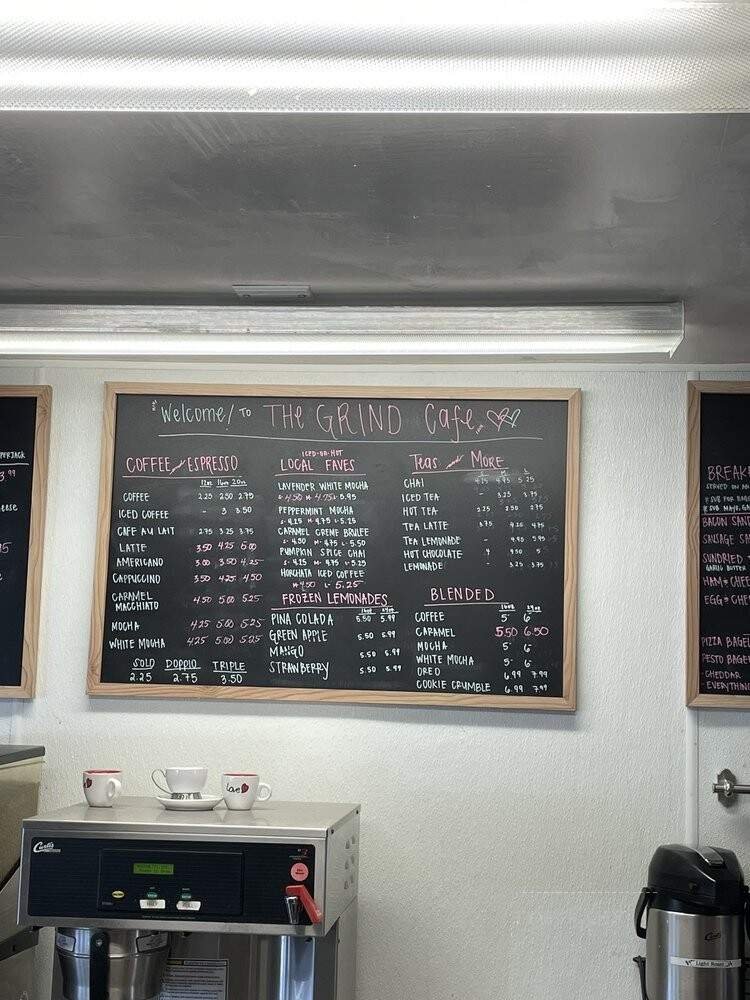 Welcome! To THE GRIND Cafe
COFFEE and ESPRESSO
12oz 16oz 20oz
COFFEE 2.25 2.50 2.75
ICED COFFEE - 3 3.50
CAFE AU LAIT 2.75 3.25 3.75
LATTE 3.50 4.25 5.00
AMERICANO 3.00 3.50 4.25
CAPPUCCINO 3.50 4.25 4.50
CARAMEL
MACCHIATO 4.50 5.00 5.25
MOCHA 4.25 5.00 5.25
WHITE MOCHA 4.25 5.00 5.25
SOLO DOPPIO TRIPLE
2.25 2.75 3.50
ICED-OR-HOT
LOCAL FAVES
LAVENDER WHITE MOCHA
S-4.50 M-4.75 L-5.95
PEPPERMINT MOCHA
S-4.25 M-4.75 L-5.25
CARAMEL CREME BRULEE
S-4.50 M-4.75 L-5.50
PUMPKIN SPICE CHAI
S-4.25 M-4.75 L-5.25
HORCHATA ICED COFFEE
M-4.50 L-5.25
FROZEN LEMONADES
16oz 24oz
PINA COLADA 5.50 5.99
GREEN APPLE 5.50 5.99
MANGO 5.50 5.99
STRAWBERRY 5.50 5.99
Teas and MORE
S M L
CHAI 4.25 4.95 5.25
ICED TEA - 3.25 3.75
HOT TEA 2.25 2.50 2.75
TEA LATTE 3.75 4.25 4.75
TEA LEMONADE - 4.95 5.95
HOT CHOCOLATE 4 4.50 5
LEMONADE - 3.25 3.75
BLENDED
16oz 24oz
COFFEE 5 6
CARAMEL 5.50 6.50
MOCHA 5 6
WHITE MOCHA 5 6
OREO 6.99 7.99
COOKIE CRUMBLE 6.99 7.99
PERJACK
3.99
BREAK
SERVED ON
BACON SAN
SAUSAGE SA
SUNDRIED
GARLIC BUTTER
HAM & CHEE
EGG & CHE
PIZZA BAGEL
PESTO BAGE
- CHEDDAR
- EVERYTHIN
Love
Curtis
Curtis
Light Roast